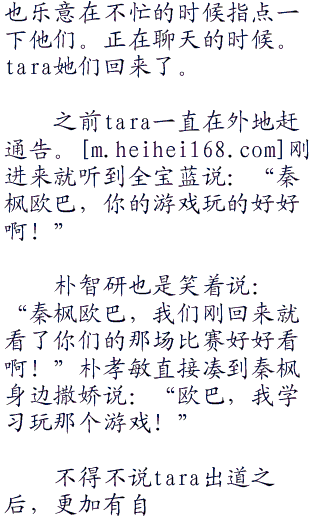 也乐意在不忙的时候指点一
下他们。正在聊天的时候。
tara她们回来了。
之前tara一直在外地赶
通告。[m.heihei168.com]刚
进来就听到全宝蓝说：“秦
枫欧巴，你的游戏玩的好好
啊！”
朴智研也是笑着说：
“秦枫欧巴，我们刚回来就
看了你们的那场比赛好好看
啊！”朴孝敏直接凑到秦枫
身边撒娇说：“欧巴，我学
习玩那个游戏！”
不得不说tara出道之
后，更加有自